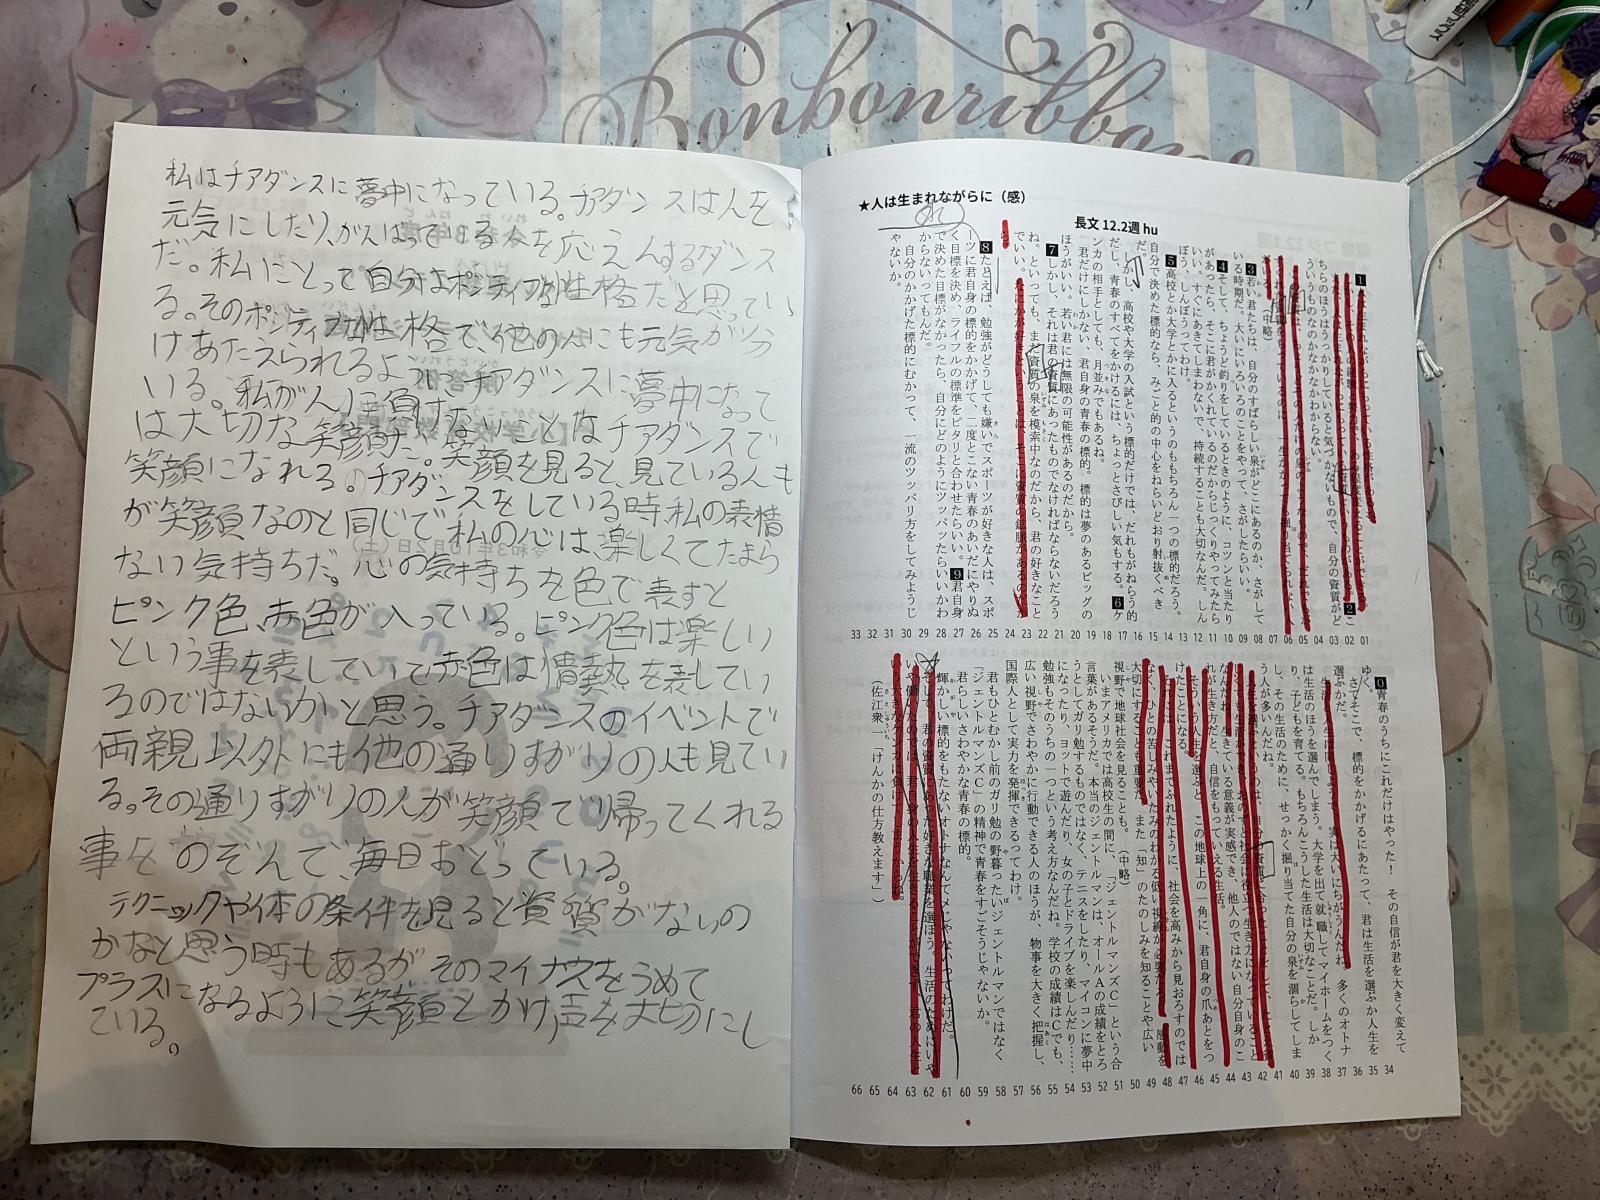 Bonbonribbon
私はチアダンスに夢中になっている。チアダンスは人を
元気にしたり、がんばっている人を応えんするダンス
だ。私にとって自分はポジティブな性格だと思ってい
る。そのポジティブな性格で他の人にも元気が分
けあたえられるようにチアダンスに夢中になって
いる。私が人に負けないことはチアダンスで
は大切な笑顔だ。笑顔を見ると見ている人も
笑顔になれる。チアダンスをしている時、私の表情
が笑顔なのと同じで私の心は、楽しくてたまら
ない気持ちだ。心の気持ちを色で表すと
ピンク色、赤色が入っている。ピンク色は楽しい
という事を表していて赤色は情熱を表してい
るのではないかと思う。チアダンスのイベントで
両親以外にも他の通りすがりの人も見てい
る。その通りすがりの人が笑顔で帰ってくれる
事をのぞんで、毎日おどっている。
テクニックや体の条件を見ると資質がないの
かなと思う時もあるがそのマイナスをうめて
プラスになるように笑顔とかけ声を大切にし
ている。
★人は生まれながらに（感）
長文 12.2週 hu
ちらのほうはうっかりしていると気づかないもので、自分の資質がど
ういうものなのかなかなかわからない。
（中略）
3 若い君たちは、自分のすばらしい泉がどこにあるのか、さがして
いる時期だ。大いにいろいろのことをやって、さがしたらいい。
4 そして、ちょうど釣りをしているときのように、コツンと当たり
があったら、そこに君がかくれているのだからじっくりやってみたら
いい。すぐにあきてしまわないで、持続することも大切なんだ。しん
ぼう、しんぼうってわけ。
5 高校とか大学とかに入るというのももちろん一つの標的だろう。
自分で決めた標的なら、みごと的の中心をねらいどおり射抜くべき
だ。
しかし、高校や大学の入試という標的だけでは、だれもがねらう的
だし、青春のすべてをかけるには、ちょっとさびしい気もする。6 ケ
ンカの相手としても、月並みでもあるね。
君だけにしかない、君自身の青春の標的。標的は夢のあるビッグの
ほうがいい。若い君には無限の可能性があるのだから。
7 しかし、それは君の資質にあったものでなければならないだろう
ね。といっても、まだ資質の泉を模索中なのだから、君の好きなこと
でいい。なにかが好きということは、そこに資質の鉱脈があるのだか
ら。
8 たとえば、勉強がどうしても嫌いでスポーツが好きな人は、スポ
ーツに君自身の標的をかかげて、二度とこない青春のあいだにやりぬ
く目標を決め、ライフルの標準をピタリと合わせたらいい。9 君自身
で決めた目標がなかったら、自分にどのようにツッパッたらいいかわ
からないってもんだ。
自分のかかげた標的にむかって、一流のツッパリ方をしてみようじ
ゃないか。
01 02 03 04 05 06 07 08 09 10 11 12 13 14 15 16 17 18 19 20 21 22 23 24 25 26 27 28 29 30 31 32 33
0 青春のうちにこれだけはやった！ その自信が君を大きく変えて
ゆく。
さてそこで、標的をかかげるにあたって、君は生活を選ぶか人生を
選ぶかだ。
生活と人生は同じようで、実は大いにちがうんだね。多くのオトナ
は生活のほうを選んでしまう。大学を出て就職してマイホームをつく
り、子どもを育てる。もちろんこうした生活は大切なことだ。しか
し、その生活のために、せっかく掘り当てた自分の泉を涸らしてしま
う人が多いんだね。
なんだね。生きている意義が実感でき、他人のではない自分自身のこ
れが生き方だと、自信をもっていえる生活。
そういう人生を選ぶと、この地球上の一角に、君自身の爪あとをつ
けたことになる。
それには、これまでふれたように、社会を高みから見おろすのでは
なく、ひとの苦しみやいたみのわかる低い視線が必要だろう。感動を
大切にすることも重要だ。また「知」のたのしみを知ることや広い
視野で地球社会を見ることも。（中略）
いまアメリカでは高校生の間に、「ジェントルマンズC」という合
言葉があるそうだ。本当のジェントルマンは、オールAの成績をとろ
うとしてガリ勉するものではなく、テニスをしたり、マイコンに夢中
になったり、ヨットで遊んだり、女の子とドライブを楽しんだり……
勉強もそのうちの一つという考え方なんだね。学校の成績はCでも、
広い視野でさわやかに行動できる人のほうが、物事を大きく把握し、
国際人として実力を発揮できるってわけ。
君もひとむかし前のガリ勉の野暮ったいジェントルマンではなく
「ジェントルマンズC」の精神で青春をすごそうじゃないか。
君らしい、さわやかな青春の標的。
輝かしい標的をもたないオトナなんてメじゃないってわけだ。
そして、君の資質にあった好きな職業を選ぼう。生活のためにいや
いや働いたのでは、君自身の人生を生きることができず、君の人生と
いう大きなケンカに負けてしまうからね。
（佐江衆一「けんかの仕方教えます」）
34 35 36 37 38 39 40 41 42 43 44 45 46 47 48 49 50 51 52 53 54 55 56 57 58 59 60 61 62 63 64 65 66